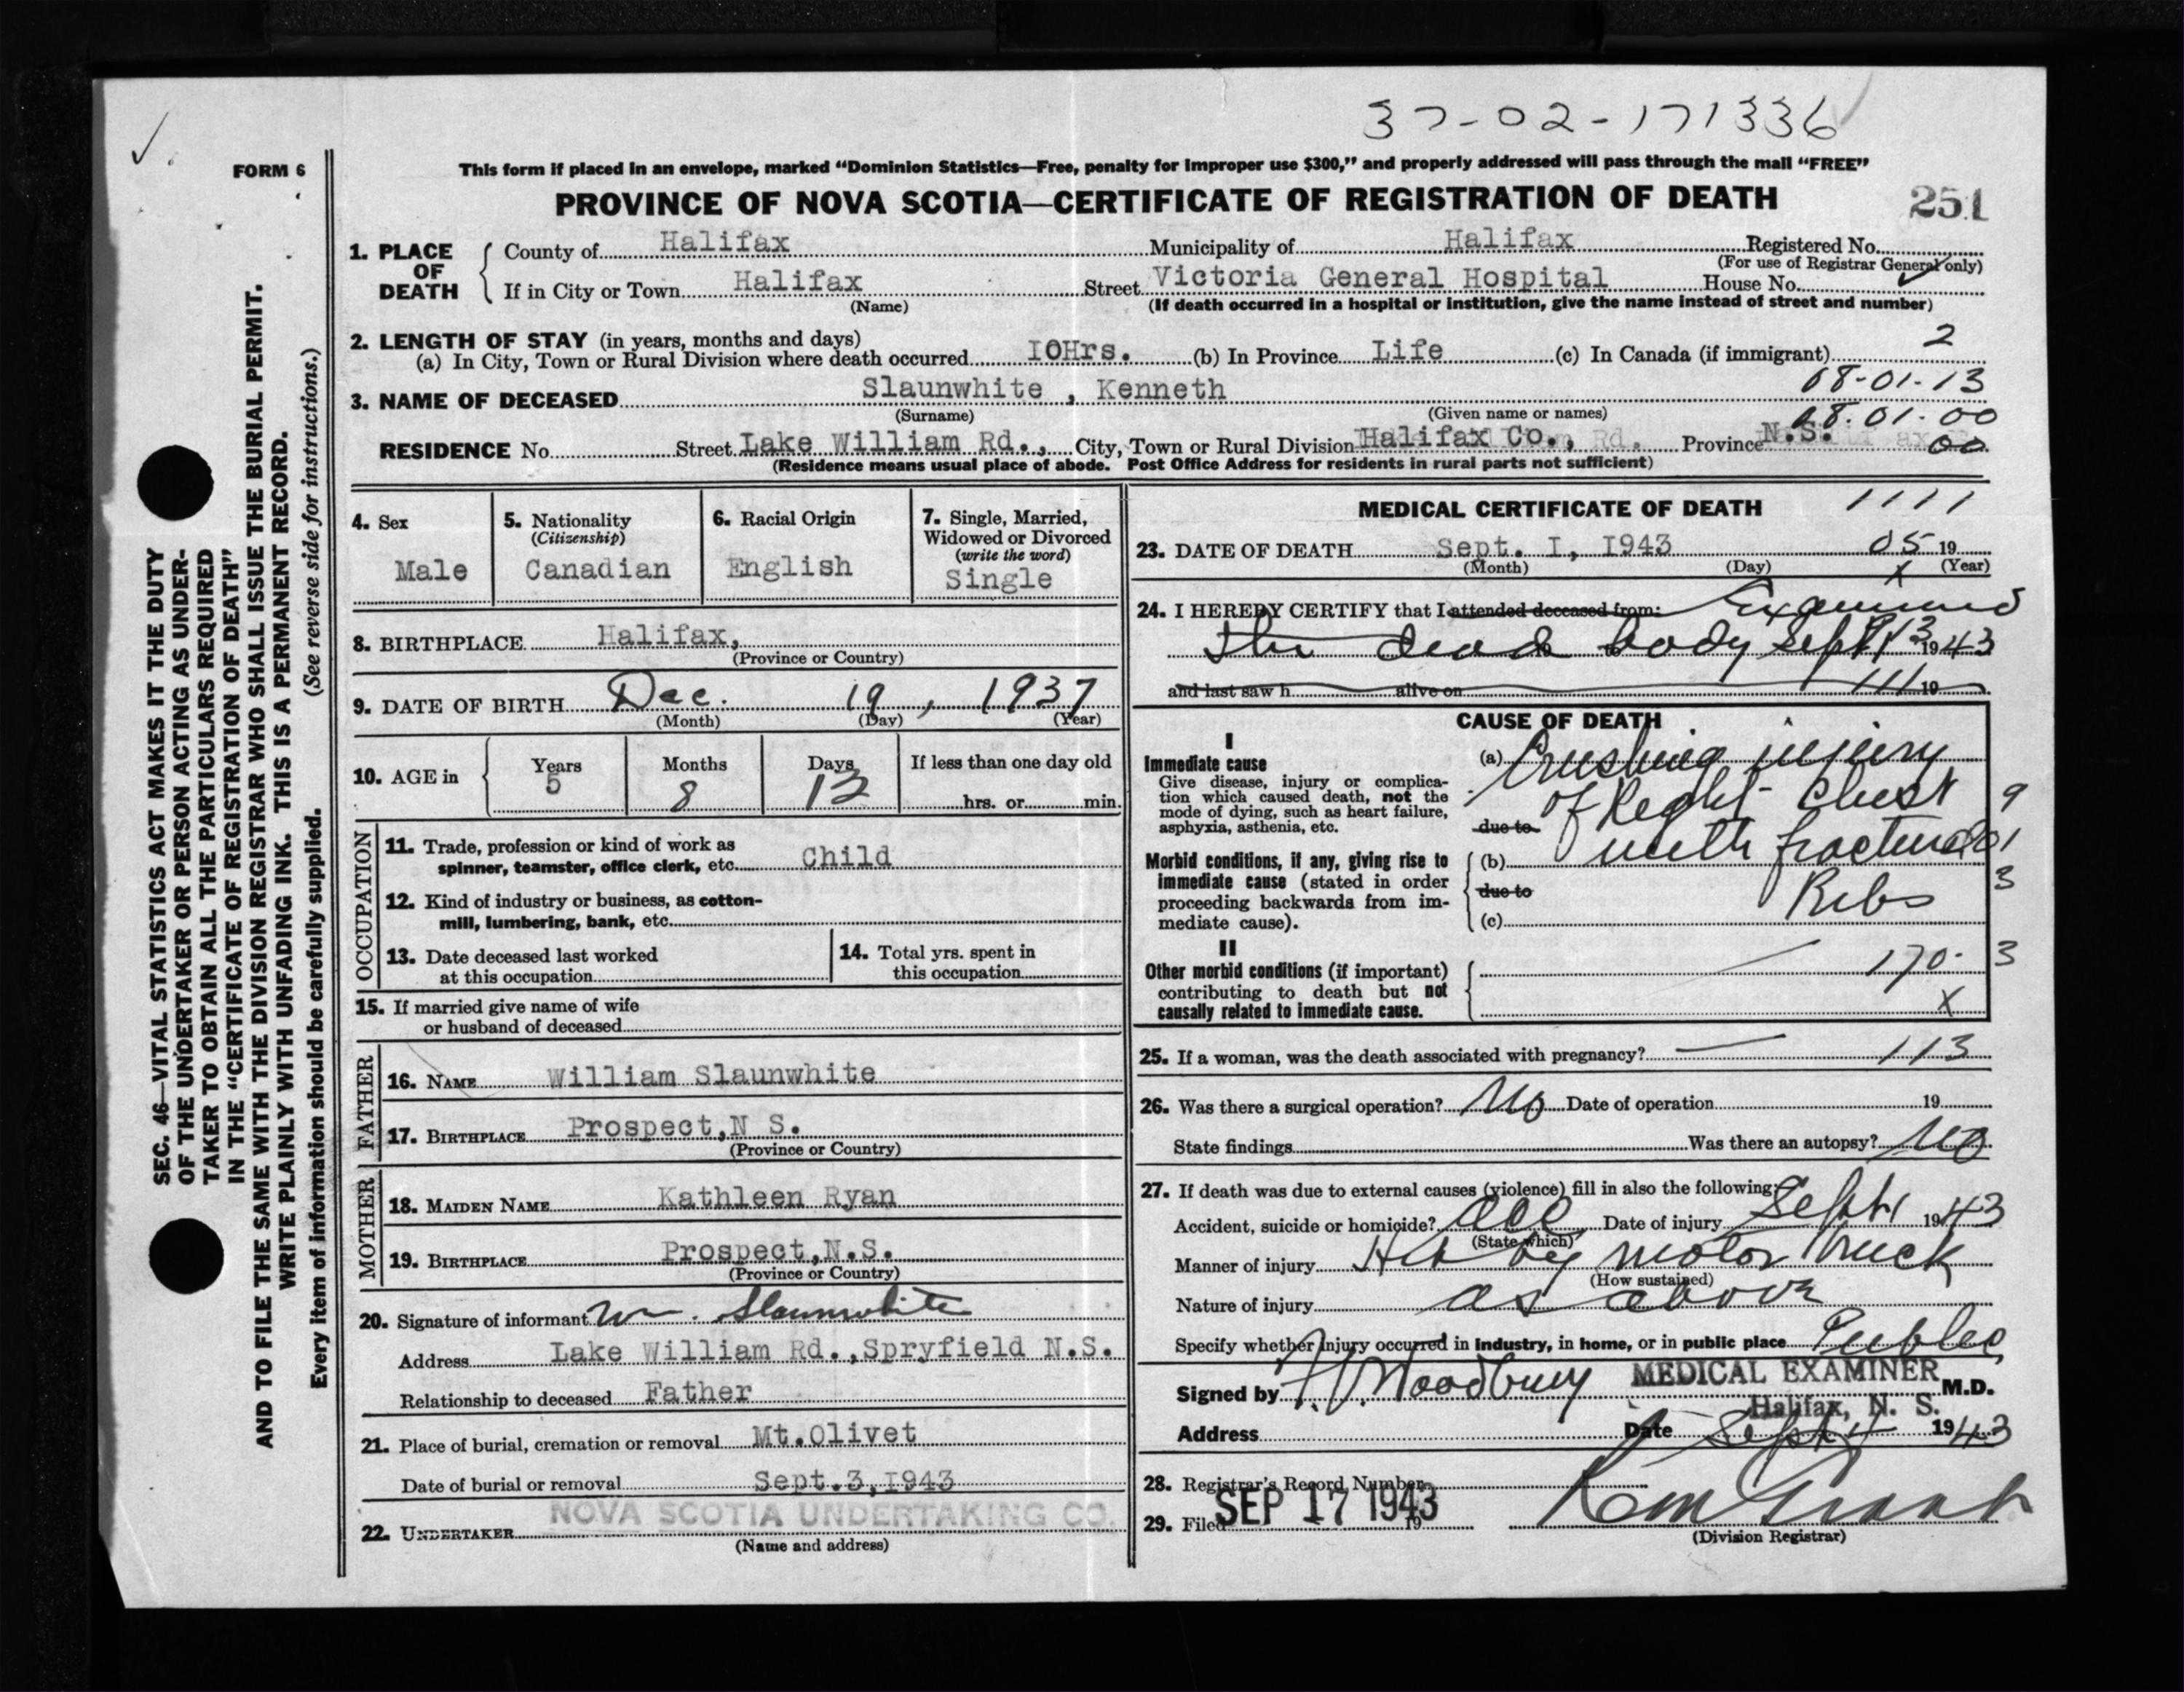 37-02-171336
FORM 6
This form if placed in an envelope, marked “Dominion Statistics—Free, penalty for improper use $300,” and properly addressed will pass through the mail “FREE”
PROVINCE OF NOVA SCOTIA—CERTIFICATE OF REGISTRATION OF DEATH
251
1. PLACE OF DEATH
County of Halifax Municipality of Halifax Registered No.
(For use of Registrar General only)
If in City or Town Halifax Street Victoria General Hospital House No.
(Name) (If death occurred in a hospital or institution, give the name instead of street and number)
2. LENGTH OF STAY (in years, months and days) 2
(a) In City, Town or Rural Division where death occurred IOHrs. (b) In Province Life (c) In Canada (if immigrant)
08-01-13
3. NAME OF DECEASED Slaunwhite , Kenneth
(Surname) (Given name or names) 08.01.00
RESIDENCE No. Street Lake William Rd., City, Town or Rural Division Halifax Co., Province N.S. 00
(Residence means usual place of abode. Post Office Address for residents in rural parts not sufficient)
4. Sex
Male
5. Nationality
(Citizenship)
Canadian
6. Racial Origin
English
7. Single, Married,
Widowed or Divorced
(write the word)
Single
8. BIRTHPLACE Halifax,
(Province or Country)
9. DATE OF BIRTH Dec. 19, 1937
(Month) (Day) (Year)
10. AGE in
Years Months Days If less than one day old
5 8 12 hrs. or min.
OCCUPATION
11. Trade, profession or kind of work as
spinner, teamster, office clerk, etc. Child
12. Kind of industry or business, as cotton-
mill, lumbering, bank, etc.
13. Date deceased last worked
at this occupation
14. Total yrs. spent in
this occupation
15. If married give name of wife
or husband of deceased
FATHER
16. NAME William Slaunwhite
17. BIRTHPLACE Prospect,N S.
(Province or Country)
MOTHER
18. MAIDEN NAME Kathleen Ryan
19. BIRTHPLACE Prospect,N.S.
(Province or Country)
20. Signature of informant Wm. Slaunwhite
Address Lake William Rd.,Spryfield N.S.
Relationship to deceased Father
21. Place of burial, cremation or removal Mt.Olivet
Date of burial or removal Sept.3,I943
NOVA SCOTIA UNDERTAKING CO.
22. UNDERTAKER
(Name and address)
MEDICAL CERTIFICATE OF DEATH 1111
23. DATE OF DEATH Sept. I, I943 05 19
(Month) (Day) (Year)
X
24. I HEREBY CERTIFY that I attended deceased from: Examined
the dead body Sept 1943
and last saw h alive on 111 19
CAUSE OF DEATH
I
Immediate cause
Give disease, injury or complica-
tion which caused death, not the
mode of dying, such as heart failure,
asphyxia, asthenia, etc.
(a) Crushing injury
of Right Chest 9
due to
Morbid conditions, if any, giving rise to
immediate cause (stated in order
proceeding backwards from im-
mediate cause).
(b) with fractured
due to Ribs 3
(c)
II
Other morbid conditions (if important)
contributing to death but not
causally related to immediate cause.
170- 3
X
25. If a woman, was the death associated with pregnancy? — 113
26. Was there a surgical operation? No Date of operation 19
State findings Was there an autopsy? No
27. If death was due to external causes (violence) fill in also the following:
Accident, suicide or homicide? acc Date of injury Sept 1 1943
(State which)
Manner of injury Hit by motor truck
(How sustained)
Nature of injury as above
Specify whether injury occurred in industry, in home, or in public place Public
MEDICAL EXAMINER
Signed by Woodbury M.D.
Halifax, N. S.
Address Date Sept 4 1943
28. Registrar's Record Number
29. Filed SEP 17 1943 19
(Division Registrar)
SEC. 46—VITAL STATISTICS ACT MAKES IT THE DUTY
OF THE UNDERTAKER OR PERSON ACTING AS UNDER-
TAKER TO OBTAIN ALL THE PARTICULARS REQUIRED
IN THE “CERTIFICATE OF REGISTRATION OF DEATH”
AND TO FILE THE SAME WITH THE DIVISION REGISTRAR WHO SHALL ISSUE THE BURIAL PERMIT.
WRITE PLAINLY WITH UNFADING INK. THIS IS A PERMANENT RECORD.
Every item of information should be carefully supplied. (See reverse side for instructions.)